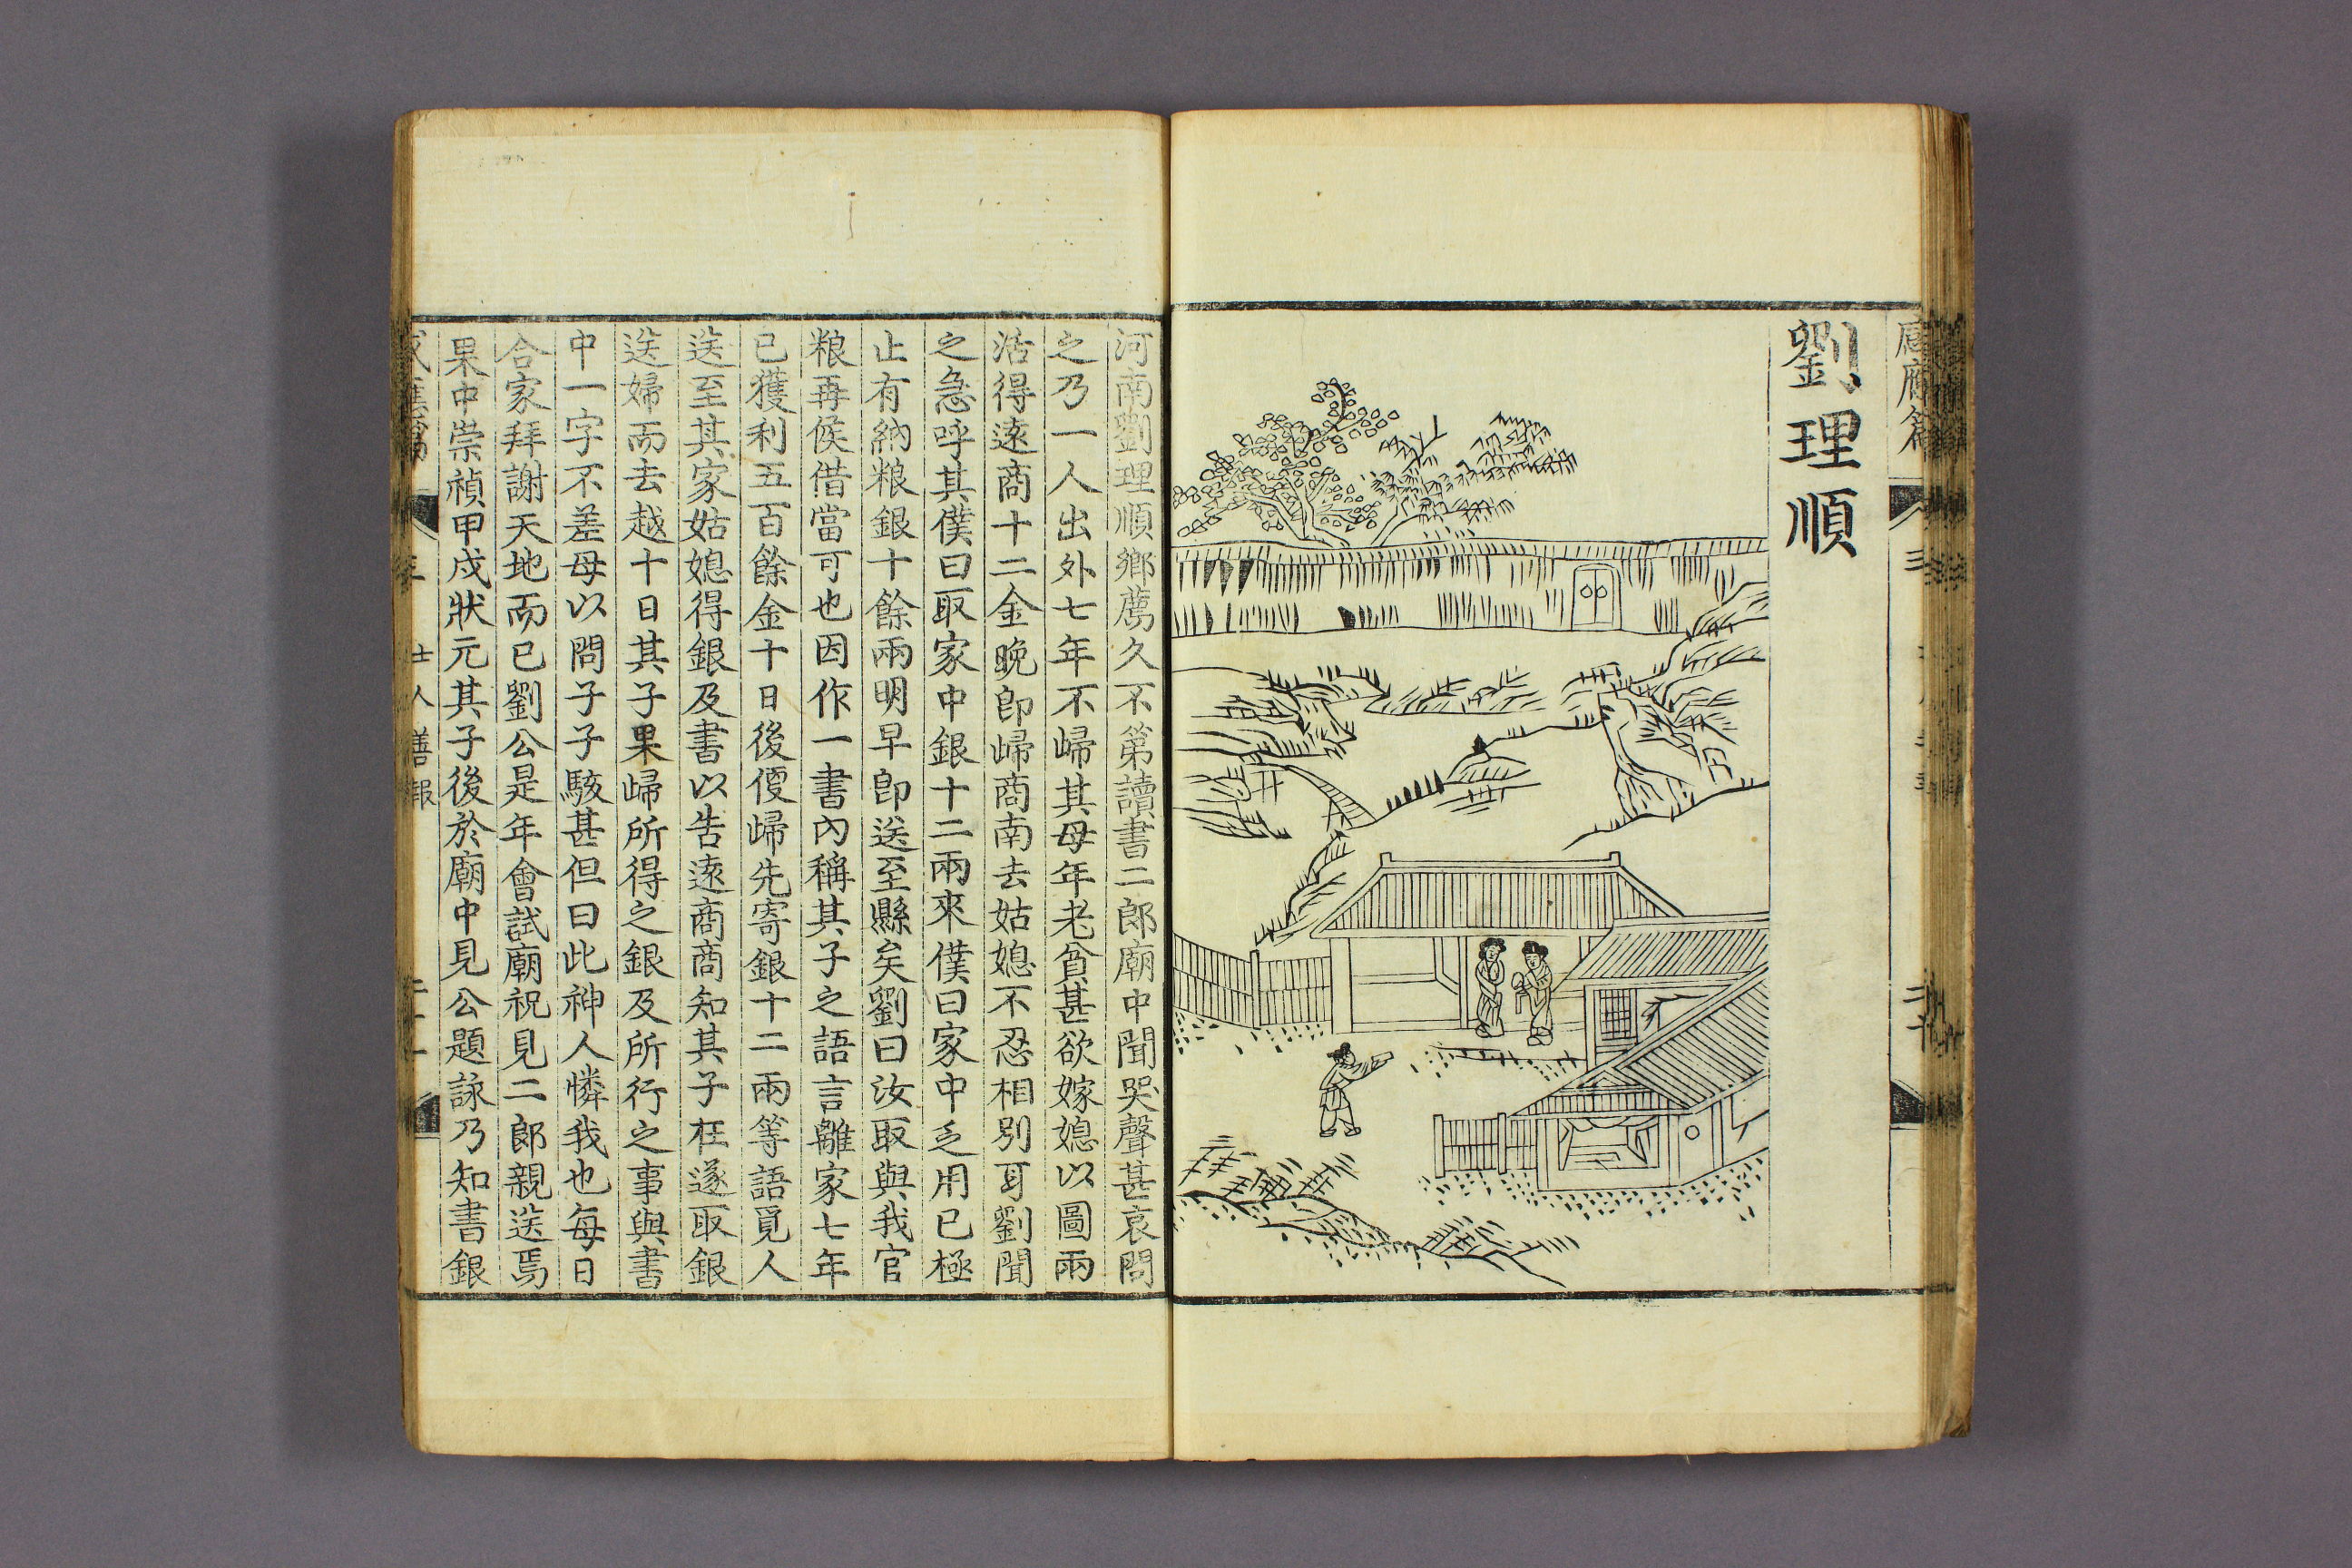 劉理順
河南劉理順鄉薦久不第讀書二郎廟中聞哭聲甚哀問
之乃一人出外七年不歸其母年老貧甚欲嫁媳以圖兩
活得遠商十二金晚卽歸商南去姑媳不忍相別耳劉聞
之急呼其僕曰取家中銀十二兩來僕曰家中乏用已極
止有納粮銀十餘兩明早卽送至縣矣劉曰汝取與我官
粮再候借當可也因作一書內稱其子之語言離家七年
已獲利五百餘金十日後便歸先寄銀十二兩等語覓人
送至其家姑媳得銀及書以告遠商商知其子在遂取銀
送婦而去越十日其子果歸所得之銀及所行之事與書
中一字不差母以問子子駭甚但曰此神人憐我也每日
合家拜謝天地而已劉公是年會試廟祝見二郎親送焉
果中崇禎甲戌狀元其子後於廟中見公題詠乃知書銀
士人善報